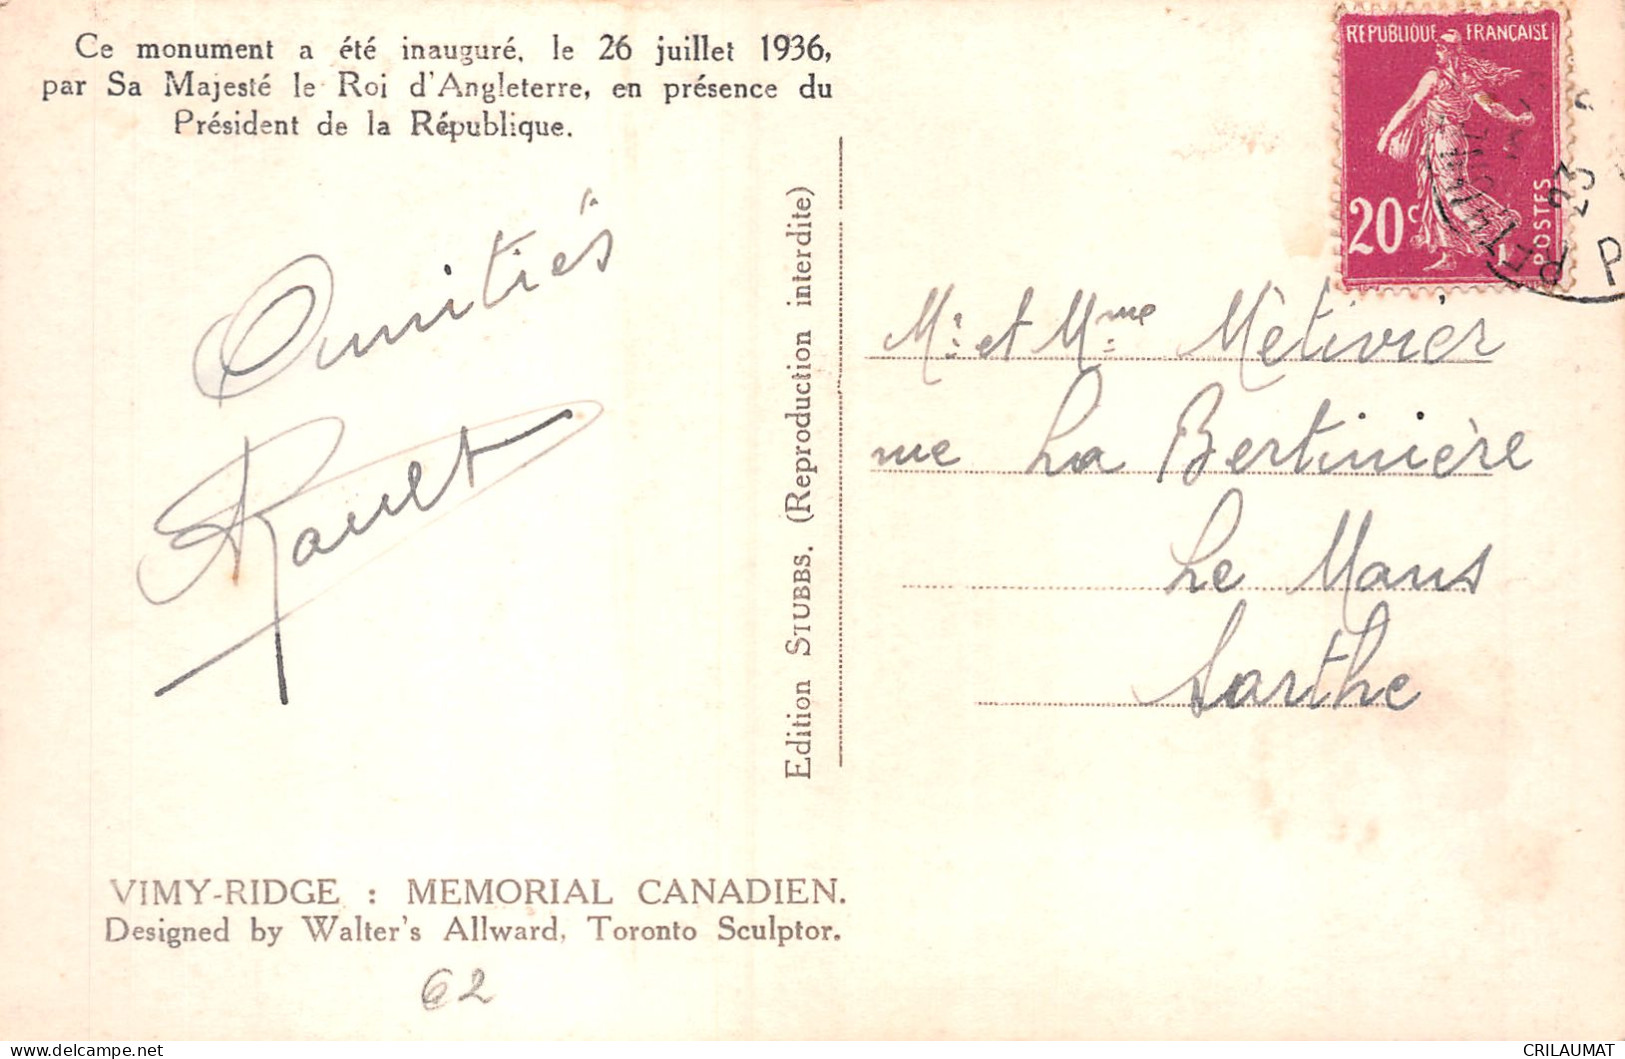 Ce monument a été inauguré, le 26 juillet 1936,
par Sa Majesté le Roi d'Angleterre, en présence du
Président de la République.
Amitiés
Rault
VIMY-RIDGE : MEMORIAL CANADIEN.
Designed by Walter's Allward, Toronto Sculptor.
62
Edition STUBBS. (Reproduction interdite)
REPUBLIQUE FRANÇAISE
20c
POSTES
23
Mr et Mme Métivier
rue La Bertinière
Le Mans
Sarthe
www.delcampe.net
CRILAUMAT